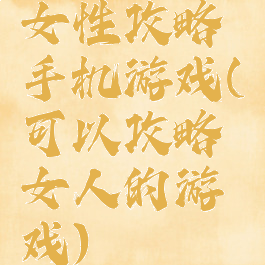 女性攻略
手机游戏(
可以攻略
女人的游
戏)